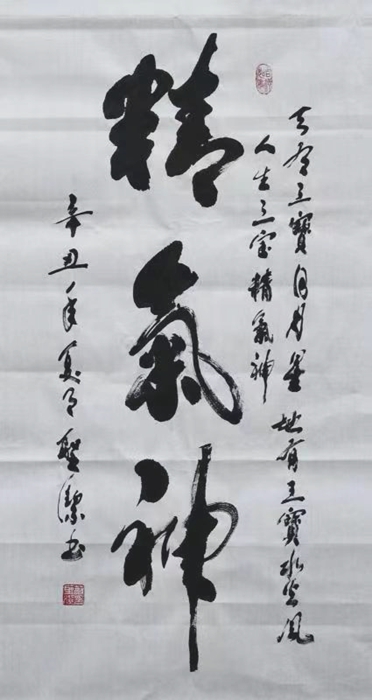 天有三寶日月星地有三寶水火風
人生三宝精氣神
精氣神
辛丑年夏月聖潔书